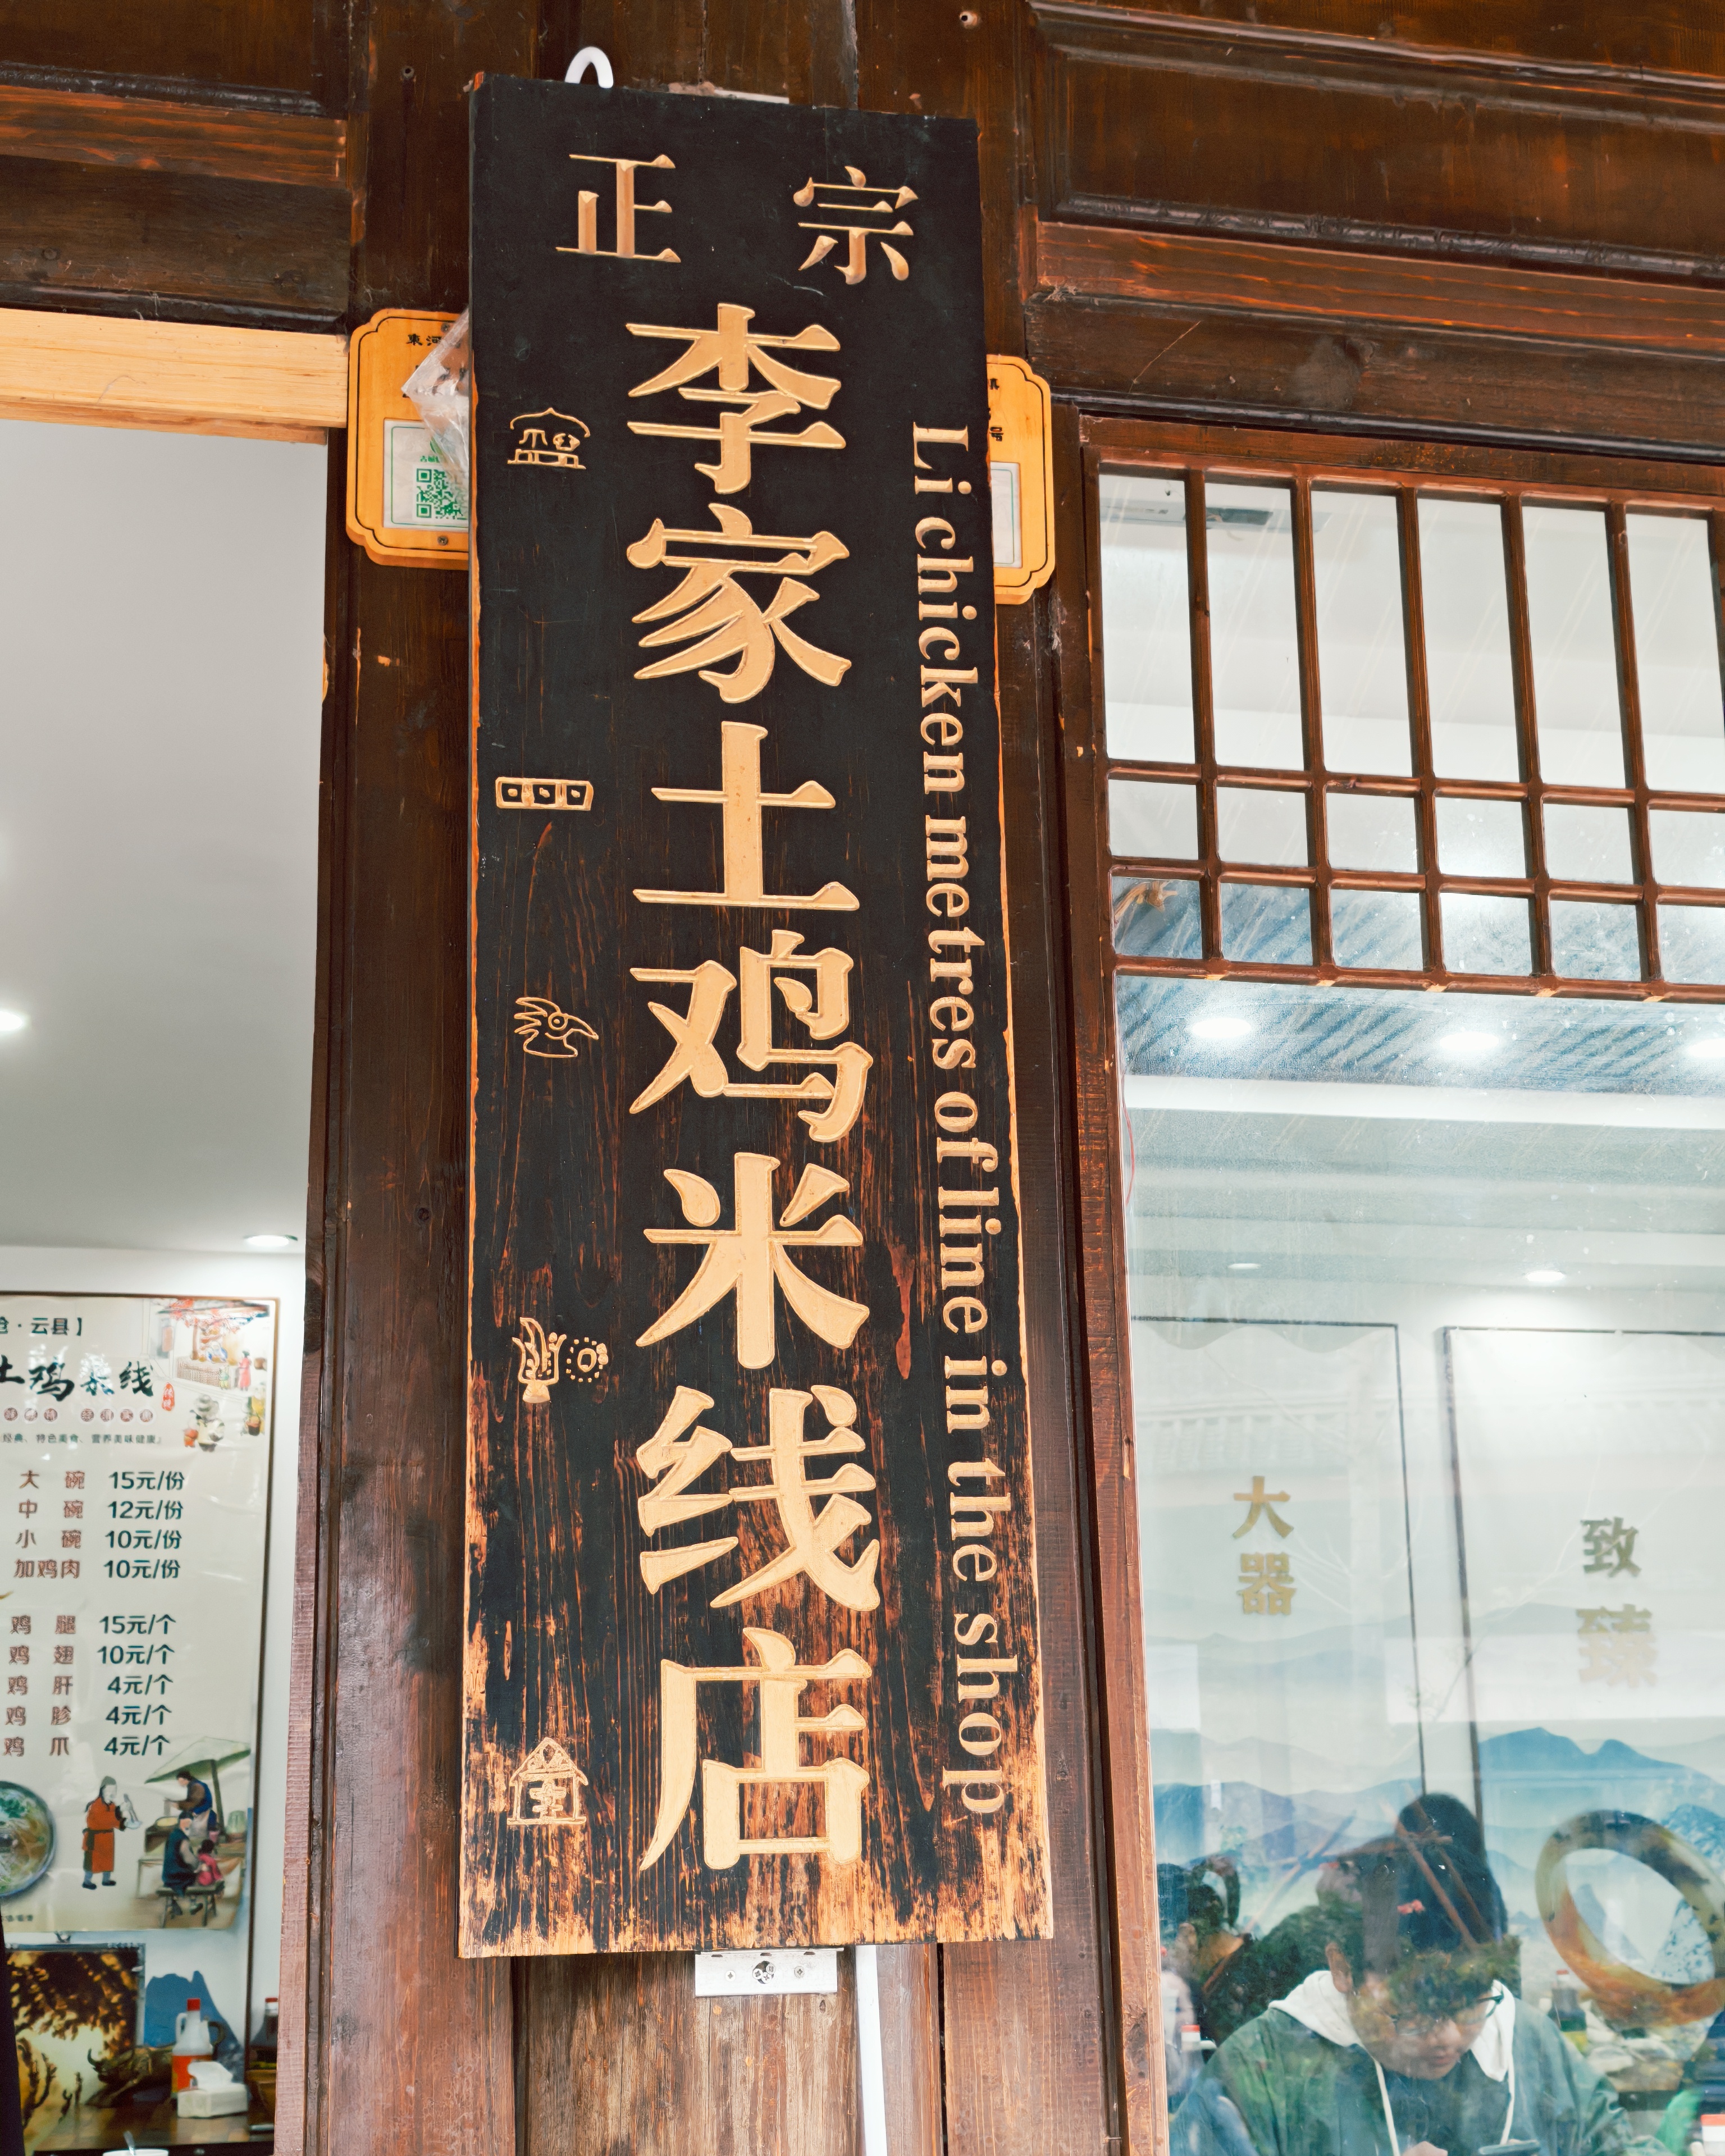 正 宗
李家土鸡米线店
Li chicken metres of line in the shop
束河
号
云县】
土鸡米线
经典、特色美食、营养美味健康
大 碗 15元/份
中 碗 12元/份
小 碗 10元/份
加鸡肉 10元/份
鸡 腿 15元/个
鸡 翅 10元/个
鸡 肝 4元/个
鸡 胗 4元/个
鸡 爪 4元/个
大器
致臻